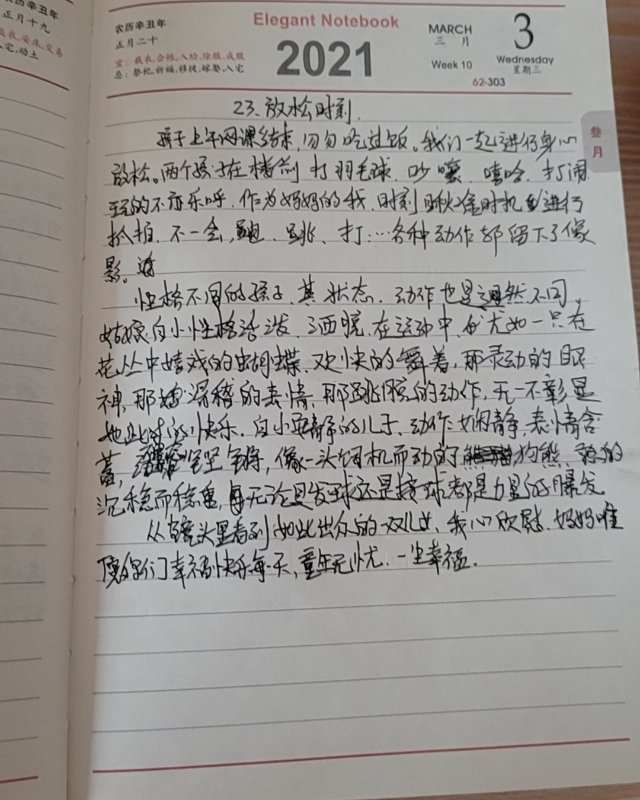 正月十九
裁衣,安床,交易
入宅,动土
农历辛丑年
正月二十
宜:裁衣,合帐,入殓,除服,成服
忌:祭祀,祈福,移徙,嫁娶,入宅
Elegant Notebook
2021
MARCH
三 月
Week 10
3
Wednesday
星期三
62-303
叁月
23.放松时刻.
孩子上午网课结束,匆匆吃过饭。我们一起进行身心
放松。两个孩子在楼前打羽毛球,吵嚷,嘻哈,打闹
玩的不亦乐乎,作为妈妈的我,时刻瞅准时机进行
抓拍,不一会,跑、跳、打…各种动作都留下了像
影。
性格不同的孩子,其状态,动作也是迥然不同,
姑娘自小性格活泼,洒脱,在运动中,尤如一只在
花丛中嬉戏的蝴蝶,欢快的舞着,那灵动的眼
神,那的表情,那跳脱的动作,无一不彰显
她此时的快乐。自小安静的儿子,动作娴静,表情含
蓄,像一头伺机而动的狗熊,
沉稳而稳重,无论是发球还是接球都是力量的爆发
从镜头里看到如此出众的一双儿女,我心欣慰,妈妈唯
愿你们幸福快乐每天,童年无忧,一生幸福.